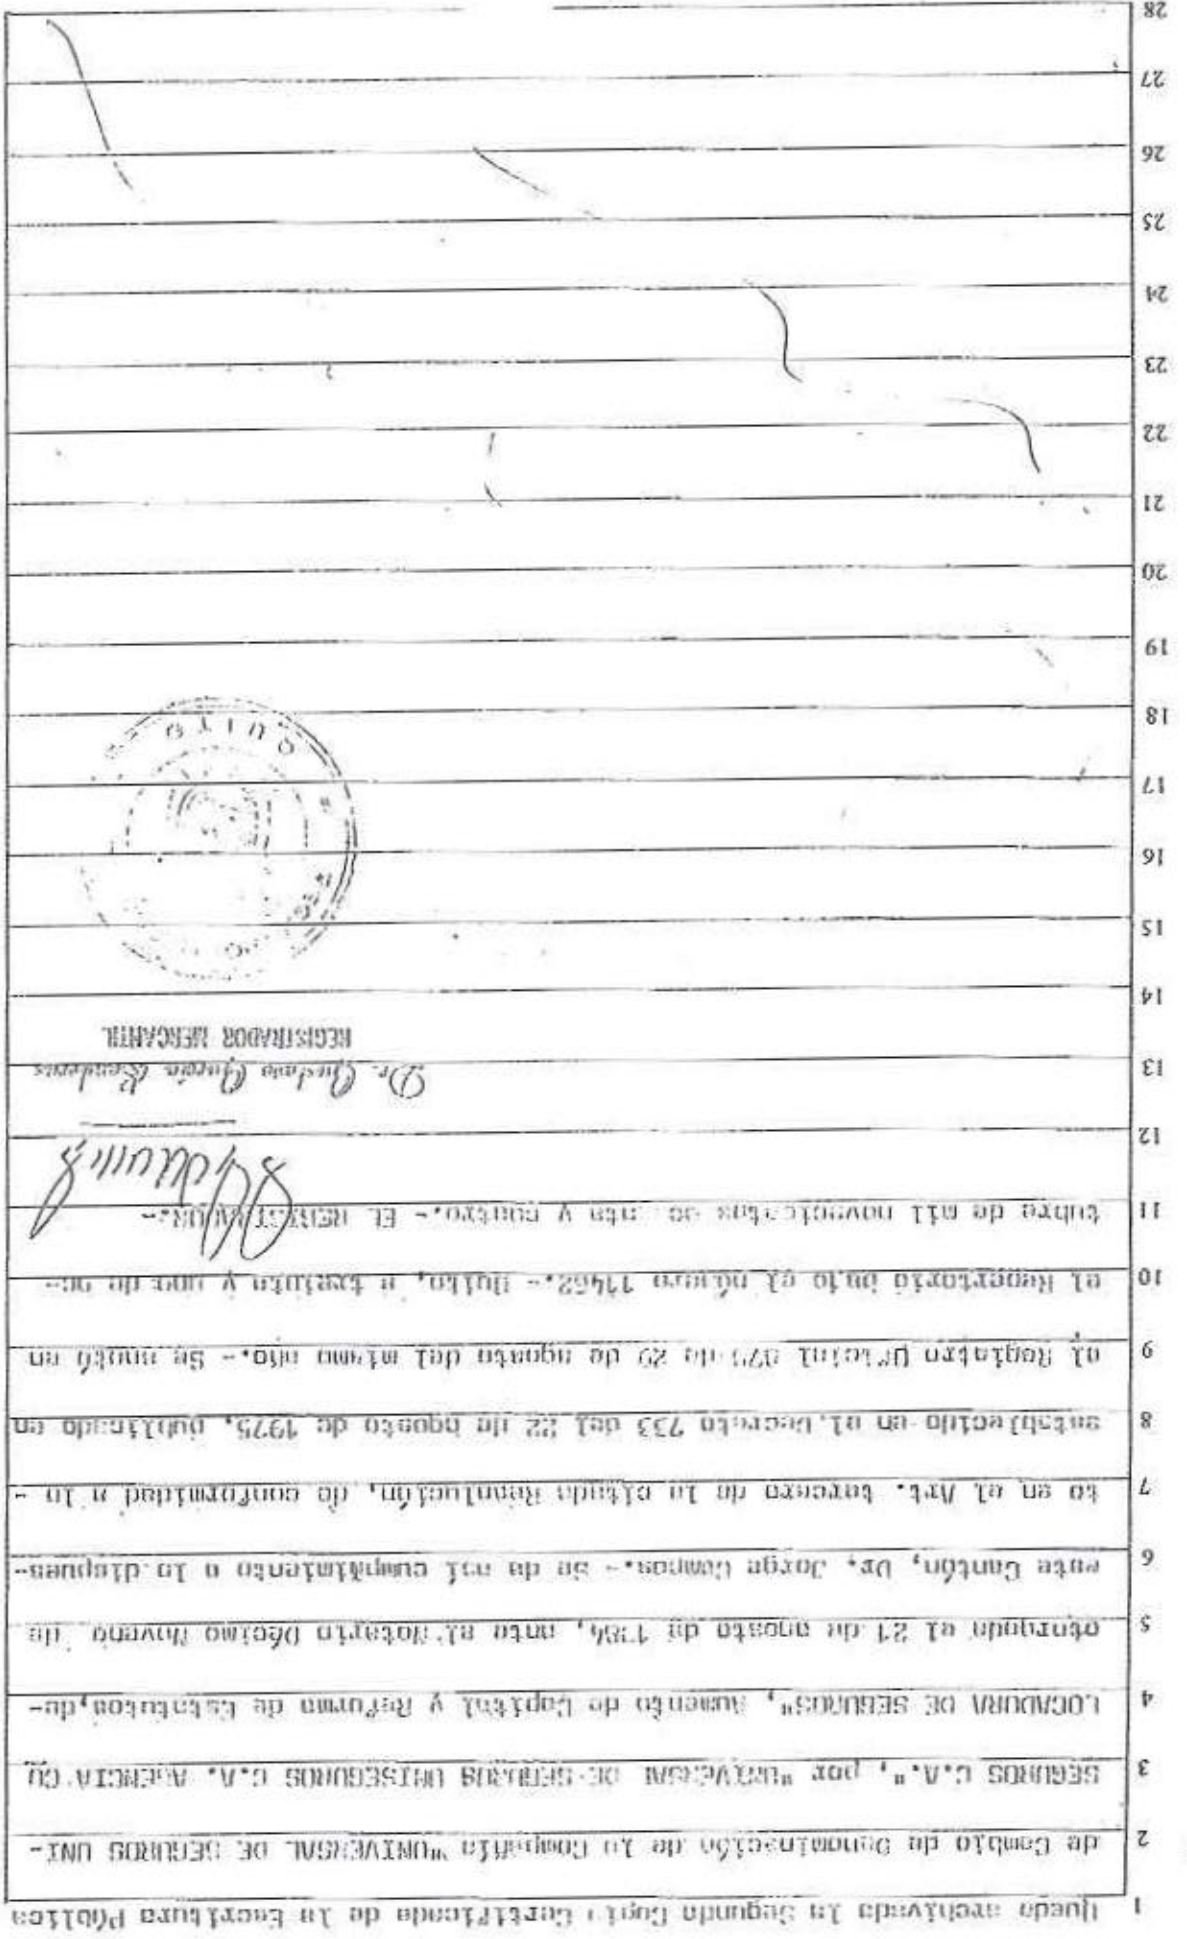 1 Queda archivada la Segunda Copia Certificada de la Escritura Pública
2 de Cambio de Denominación de la Compañía "UNIVERSAL DE SEGUROS UNI-
3 SEGUROS C.A.", por "UNIVERSAL DE SEGUROS UNISEGUROS C.A. AGENCIA CO
4 LOCADORA DE SEGUROS", Aumento de Capital y Reforma de Estatutos, de-
5 otorgada el 21 de agosto de 1984, ante el Notario Décimo Noveno de
6 este Cantón, Dr. Jorge Campos.- Se da así cumplimiento a lo dispues-
7 to en el Art. tercero de la citada Resolución, de conformidad a lo -
8 establecido en el Decreto 733 del 22 de agosto de 1975, publicado en
9 el Registro Oficial 878 de 29 de agosto del mismo año.- Se anotó en
10 el Repertorio bajo el número 11462.- Quito, a treinta y uno de oc-
11 tubre de mil novecientos ochenta y cuatro.- EL REGISTRADOR.-
12
13 Dr. Gustavo García Banderas
REGISTRADOR MERCANTIL
14
15
16
17
18 QUITO
19
20
21
22
23
24
25
26
27
28